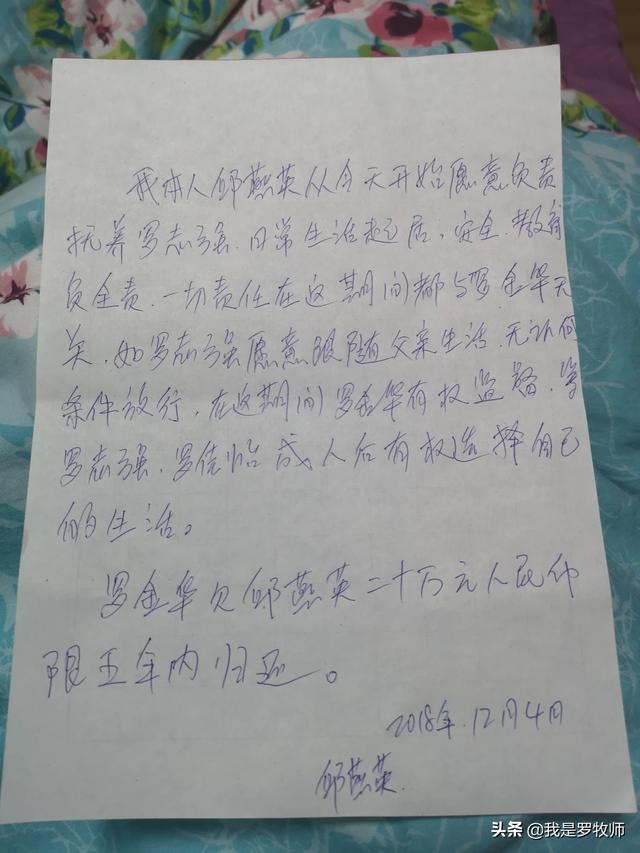 我本人邱燕英从今天开始愿意负责
抚养罗志强.日常生活起居、安全.教育
负全责.一切责任在这期间都与罗金华无
关.如罗志强愿意跟随父亲生活.无认何
条件放行.在这期间罗金华有权监督.等
罗志强.罗佳怡成人后有权选择自己
的生活。
罗金华欠邱燕英二十万元人民币
限五年内归还。
2018年.12月4日
邱燕英.
头条 @我是罗牧师